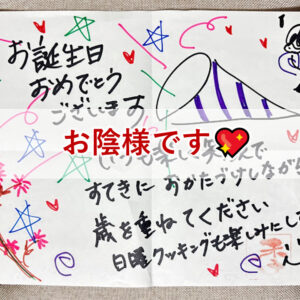 お誕生日
おめでとう
ございます
お陰様です💖
いつも楽し
すてきに おかたづけしながら
歳を重ねてください
日曜クッキングも楽しみにし